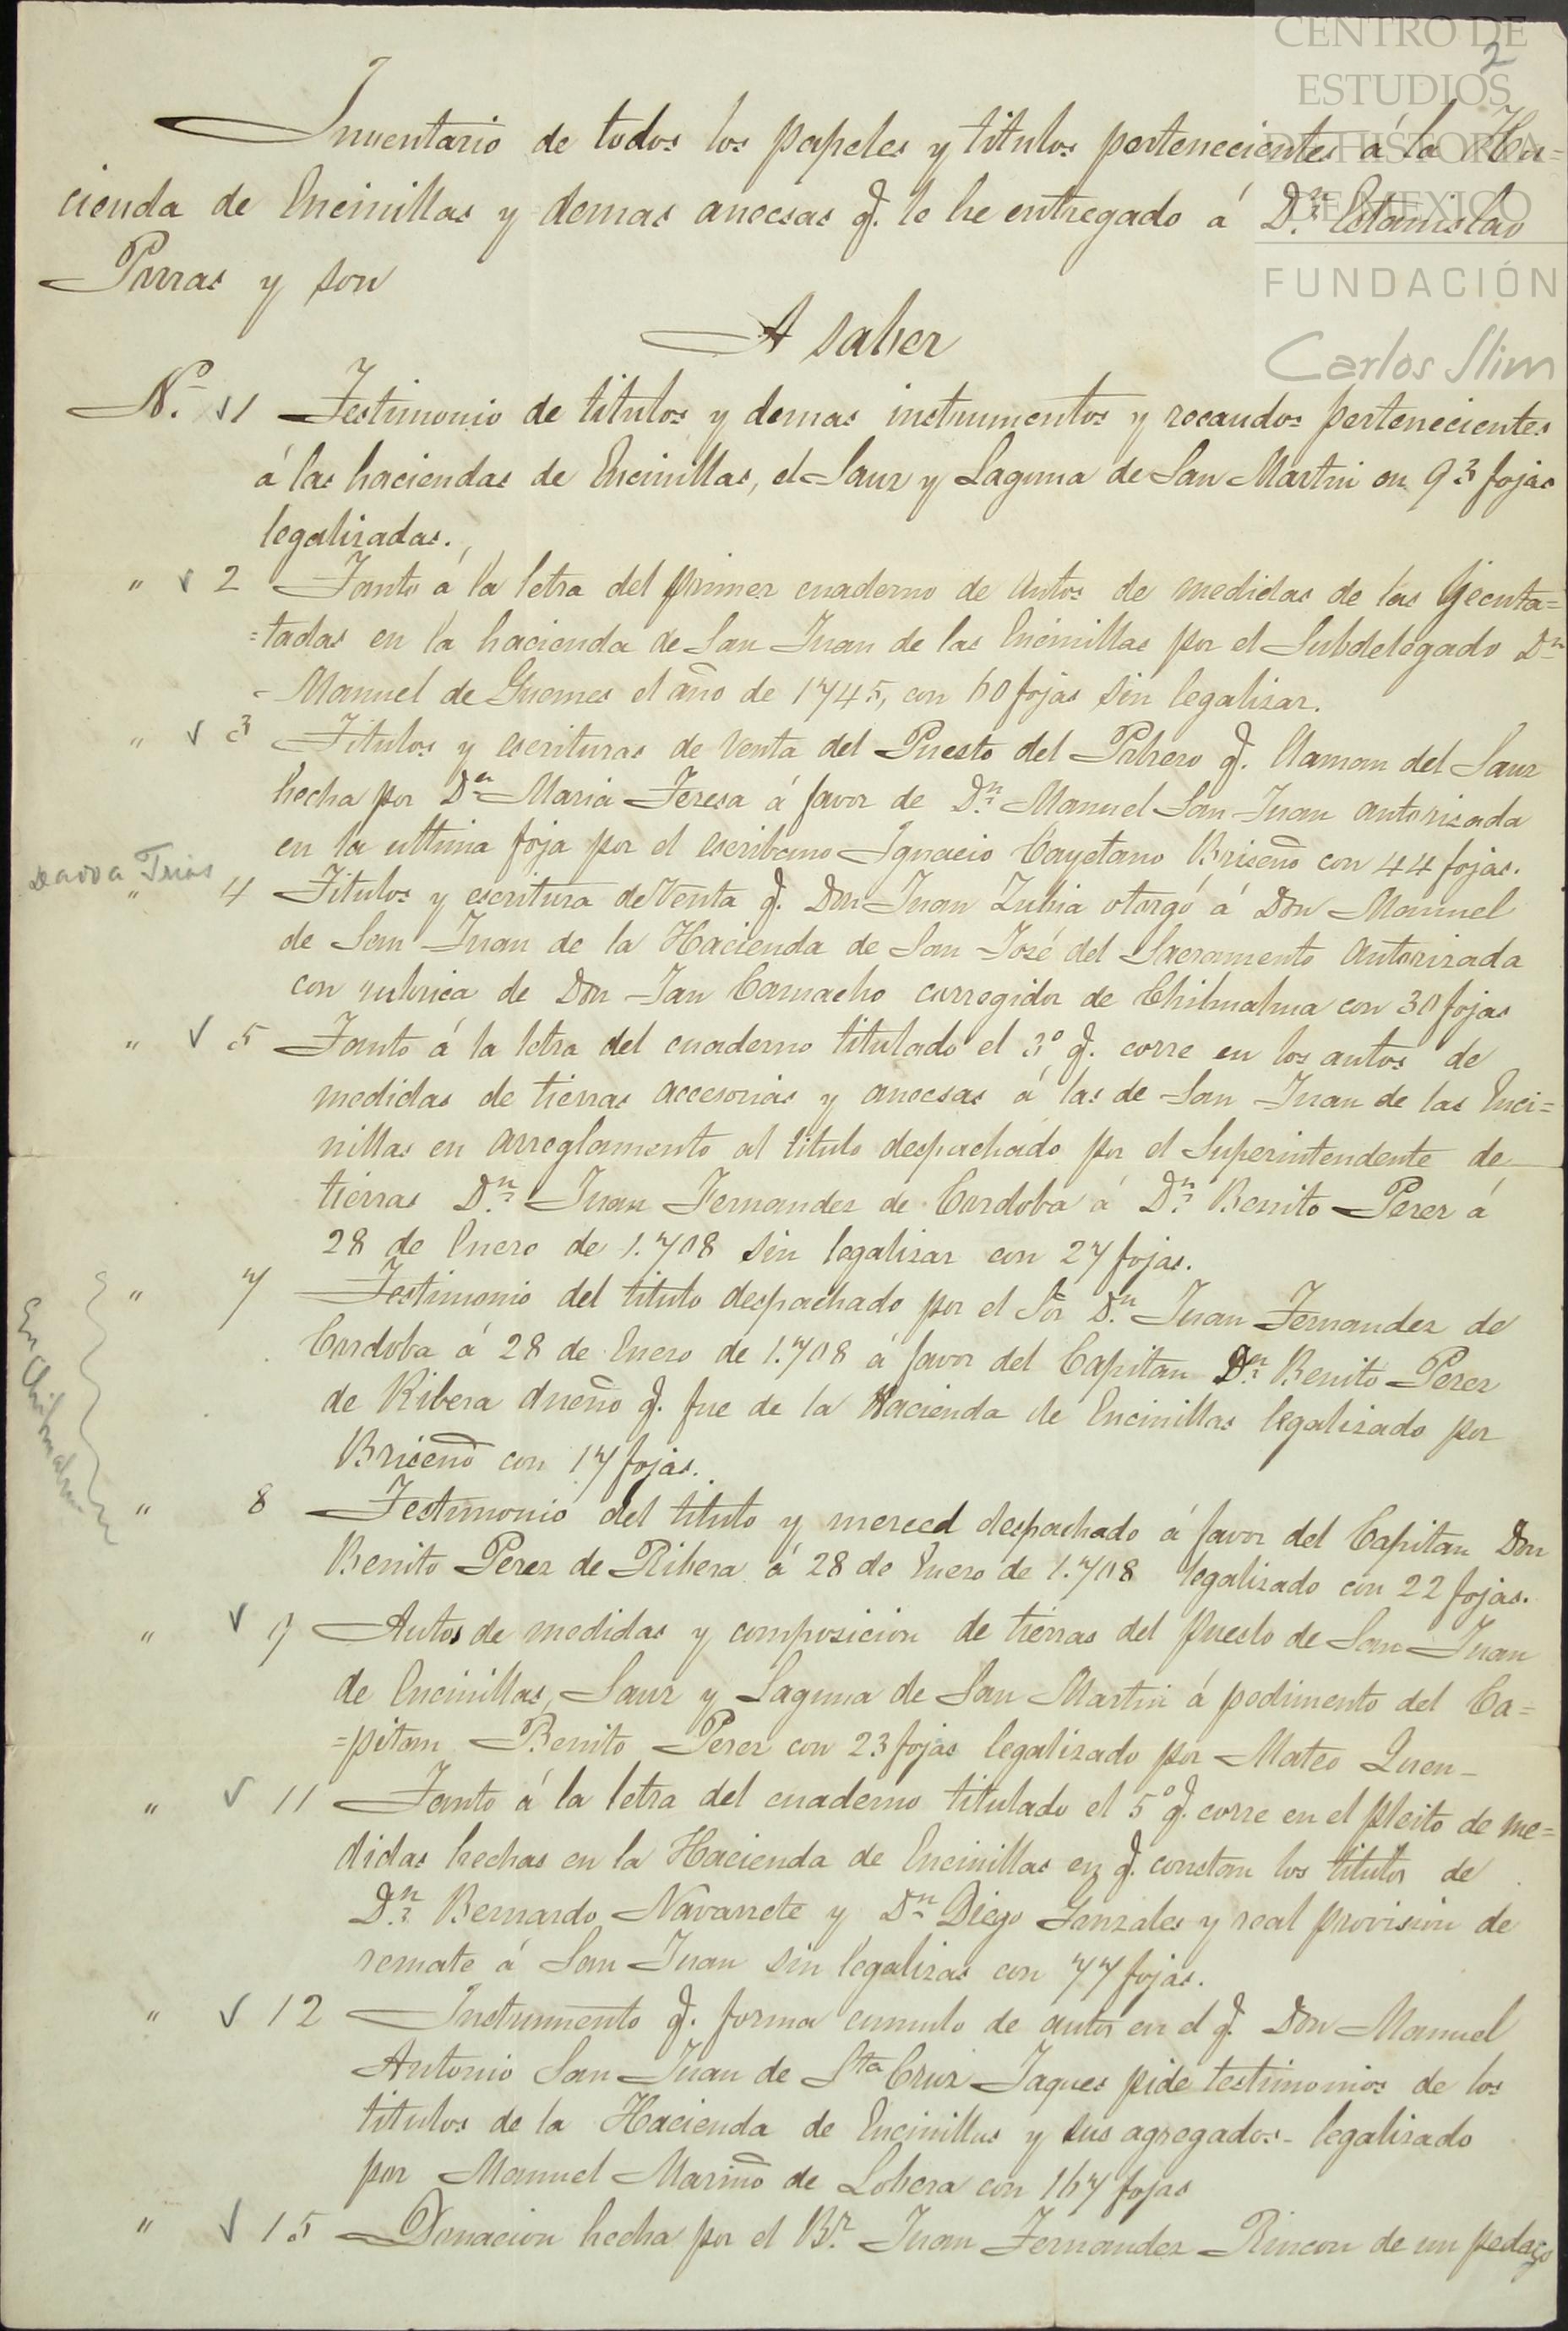 CENTRO DE
ESTUDIOS
DE HISTORIA
DE MEXICO
FUNDACIÓN
Carlos Slim
2
Inventario de todos los papeles y titulos pertenecientes á la Ha=
cienda de Encinillas y demas anecsas q. le he entregado á Dn. Estanislao
Porras y son
A saber
No. √ 1 Testimonio de titulos y demas instrumentos y recaudos pertenecientes
á las haciendas de Encinillas, el Sauz y Laguna de San Martin en 93 fojas
legalizadas.
" √ 2 Tanto á la letra del primer cuaderno de autos de medidas de las Ejecuta=
=tadas en la hacienda de San Juan de las Encinillas por el Subdelegado Dn
Manuel de Guemes el año de 1745, con 60 fojas sin legalizar.
" √ 3 Titulos y escrituras de venta del Puesto del Potrero q. llaman del Sauz
hecha por Da Maria Teresa á favor de Dn. Manuel San Juan autorizada
en la ultima foja por el escribano Ignacio Cayetano Briseño con 44 fojas.
Trias
" 4 Titulos y escritura de venta q. Don Juan Zubia otorgó á Don Manuel
de San Juan de la Hacienda de San José del Sacramento autorizada
con rubrica de Don Jan Camacho corregidor de Chihuahua con 30 fojas
" √ 5 Tanto á la letra del cuaderno titulado el 3o q. corre en los autos de
medidas de tierras accesorias y anecsas á las de San Juan de las Enci=
nillas en arreglamento al titulo despachado por el Superintendente de
tierras Dn. Juan Fernandez de Cordoba á Dn. Benito Perez á
28 de Enero de 1.708 sin legalizar con 27 fojas.
En Chihuahua
" 7 Testimonio del titulo despachado por el Sor Dn. Juan Fernandez de
Cordoba á 28 de Enero de 1.708 á favor del Capitan Dn. Benito Perez
de Ribera dueño q. fue de la Hacienda de Encinillas legalizado por
Briseño con 17 fojas.
" 8 Testimonio del titulo y merced despachado á favor del Capitan Don
Benito Perez de Ribera á 28 de Enero de 1.708 legalizado con 22 fojas.
" √ 9 Autos de medidas y composicion de tierras del puesto de San Juan
de Encinillas, Sauz y Laguna de San Martin á pedimento del Ca=
=pitan Benito Perez con 23 fojas legalizado por Mateo Quen-
" √ 11 Tanto á la letra del cuaderno titulado el 5o q. corre en el pleito de me=
didas hechas en la Hacienda de Encinillas en q. constan los titulos de
Dn. Bernardo Navarrete y Dn Diego Gonzales y real provision de
remate á San Juan sin legalizar con 77 fojas.
" √ 12 Instrumento q. forma cumulo de autos en el q. Don Manuel
Antonio San Juan de Sta Cruz Jaques pide testimonios de los
titulos de la Hacienda de Encinillas y sus agregados- legalizado
por Manuel Mariño de Lobera con 167 fojas
" √ 15 Donacion hecha por el Br. Juan Fernandez Rincon de un pedazo